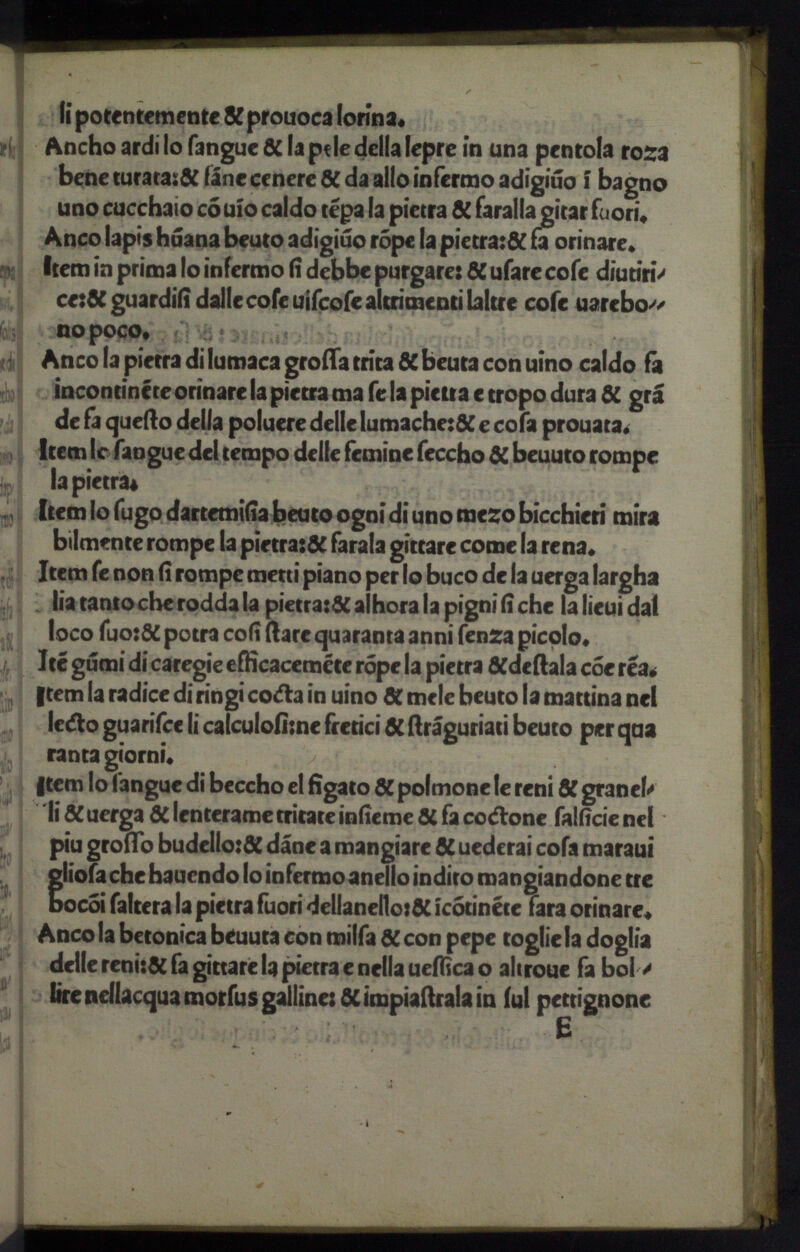 li potentemente & prouoca lorina.
Ancho ardi lo ſangue & la pele della lepre in una pentola roza
bene turata:& fáne cenere & da allo infermo adigiúo ĩ bagno
uno cucchaio có uío caldo tépa la pietra & faralla gitar fuori.
Anco lapis húana beuto adigiúo rópe la pietra:& fa orinare.
Item in prima lo infermo ſi debbe purgare: & uſare coſe diutiri⸗
ce:& guardiſi dalle coſe uiſcoſe altrimenti laltre coſe uarebo⸗
no poco.
Anco la pietra di lumaca groſſa trita & beuta con uino caldo fa
incontinéte orinare la pietra ma ſe la pietra e tropo dura & grá
de fa queſto della poluere delle lumache:& e coſa prouata.
Item lo ſangue del tempo delle femine ſeccho & beuuto rompe
la pietra.
Item lo ſugo dartemiſia beuto ogni di uno mezo bicchieri mira
bilmente rompe la pietra:& farala gittare come la rena.
Item ſe non ſi rompe metti piano per lo buco de la uerga largha
lia tanto che rodda la pietra:& alhora la pigni ſi che la lieui dal
loco ſuo:& potra coſi ſtare quaranta anni ſenza picolo.
Ité gúmi di caregie efficaceméte rópe la pietra & deſtala cóe réa.
Item la radice di ringi cocta in uino & mele beuto la mattina nel
lecto guariſce li calculoſi:ne fretici & ſtráguriati beuto per qua
ranta giorni.
Item lo ſangue di beccho el figato & polmone le reni & granel⸗
li & uerga & lenterame tritate inſieme & fa coctone ſalſicie nel
piu groſſo budello:& dáne a mangiare & uederai coſa maraui
glioſa che hauendo lo infermo anello in dito mangiandone tre
bocói ſaltera la pietra fuori dellanello:& ĩcótinéte fara orinare.
Anco la betonica beuuta con milſa & con pepe toglie la doglia
delle reni:& fa gittare la pietra e nella ueſſica o altroue fa bol⸗
lire nellacqua morſus galline: & impiaſtrala in ſul pettignone
E